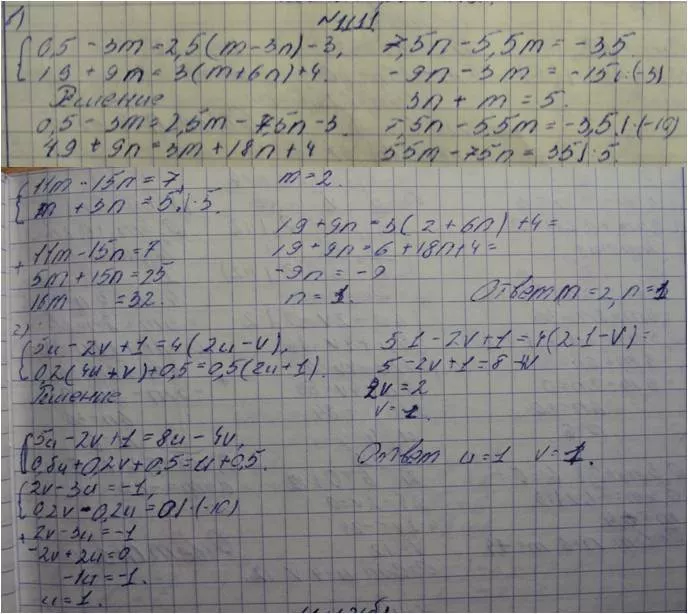 б)
№1111
0,5 - 3m = 2,5(m - 3n) - 3,
19 + 9n = 3(m + 6n) + 4.
Решение
0,5 - 3m = 2,5m - 7,5n - 3
49 + 9n = 3m + 18n + 4
7,5n - 5,5m = -3,5.
-9n - 3m = -15 |:(-3)
3n + m = 5.
7,5n - 5,5m = -3,5 |·(-10)
55m - 75n = 35 |:5.
11m - 15n = 7,
m + 3n = 5. |·5.
+ 11m - 15n = 7
5m + 15n = 25
16m = 32.
m = 2.
19 + 9n = 3(2 + 6n) + 4 =
19 + 9n = 6 + 18n + 4 =
-9n = -9
n = 1.
Ответ m = 2, n = 1
2)
5u - 2v + 1 = 4(2u - v),
0,2(4u + v) + 0,5 = 0,5(2u + 1).
Решение
5u - 2v + 1 = 8u - 4v,
0,8u + 0,2v + 0,5 = u + 0,5.
2v - 3u = -1,
0,2v - 0,2u = 0 |·(-10)
+ 2v - 3u = -1
-2v + 2u = 0
-1u = -1.
u = 1.
5·1 - 2v + 1 = 4(2·1 - v) =
5 - 2v + 1 = 8 - 4v
2v = 2
v = 1.
Ответ u = 1 v = 1.